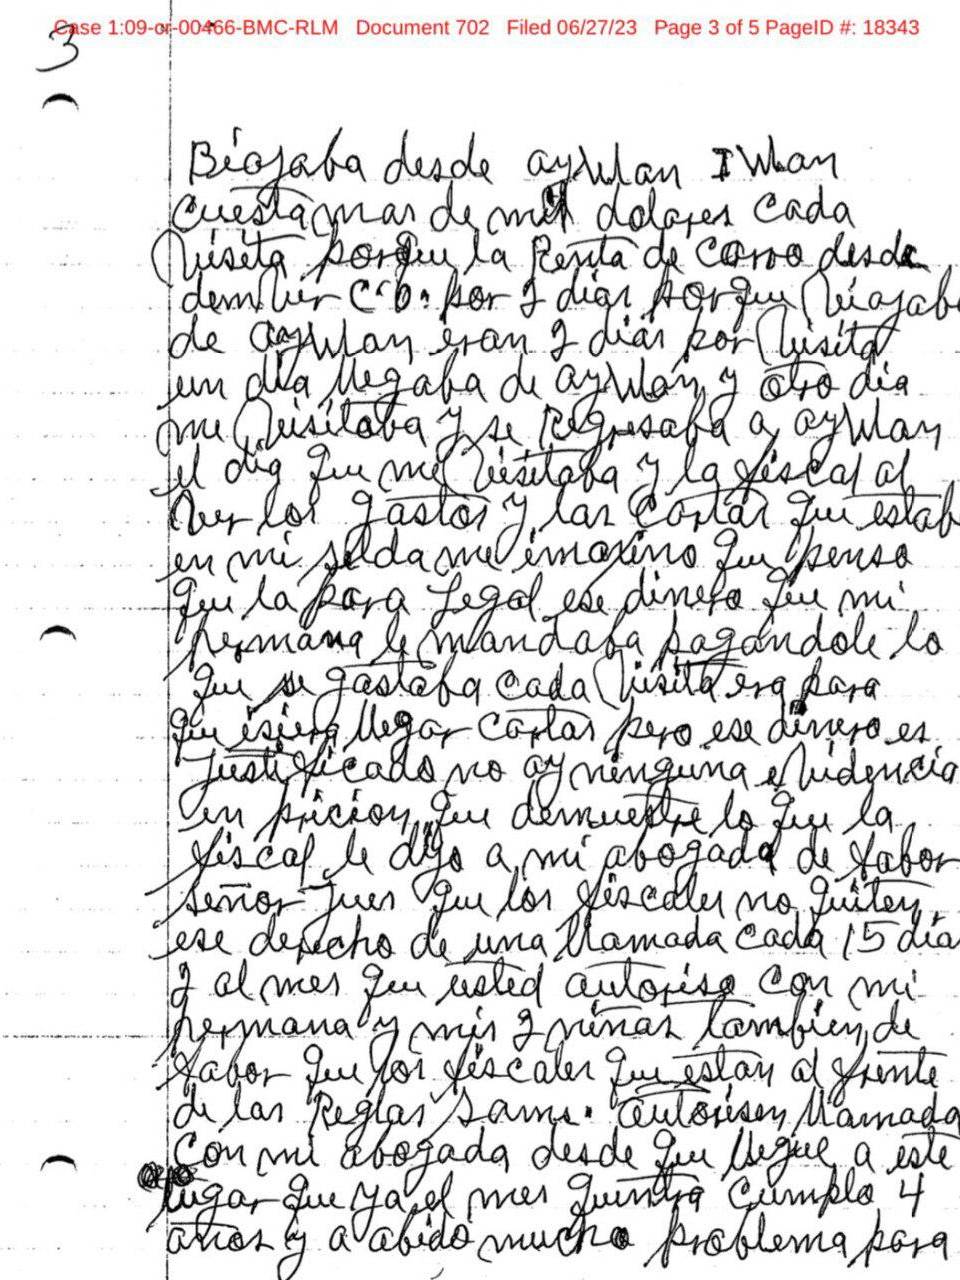 Case 1:09-cr-00466-BMC-RLM Document 702 Filed 06/27/23 Page 3 of 5 PageID #: 18343
3
Biajaba desde aywan I Wan
cuesta mas de mil dolares cada
Visita porque la Renta de carro desde
denver C.O. por 2 dias porque Viajaba
de aywan eran 2 dias por Visita
un dia llegaba de aywan y otro dia
me Visitaba y se Regresaba a aywan
el dia que me Visitaba y la fiscal al
Ver los gastos y las cartas que estab
en mi selda me imaxino que penso
que la para Legal ese dinero que mi
hermana le mandaba pagandole lo
que se gastaba cada Visita era para
que isiera llegar cartas pero ese dinero es
Justificado no ay ninguna eVidencia
en pricion que demuestre lo que la
fiscal le dijo a mi abogada de fabor
señor Jues que los fiscales no quiten
ese derecho de una llamada cada 15 dia
2 al mes que usted autoriso con mi
hermana y mis 2 niñas tambien de
fabor que los fiscales que estan al frente
de las Reglas Sams. autorisen llamada
con mi abogada desde que llegue a este
lugar que ya el mes que entra cumplo 4
años y a abido mucho problema para